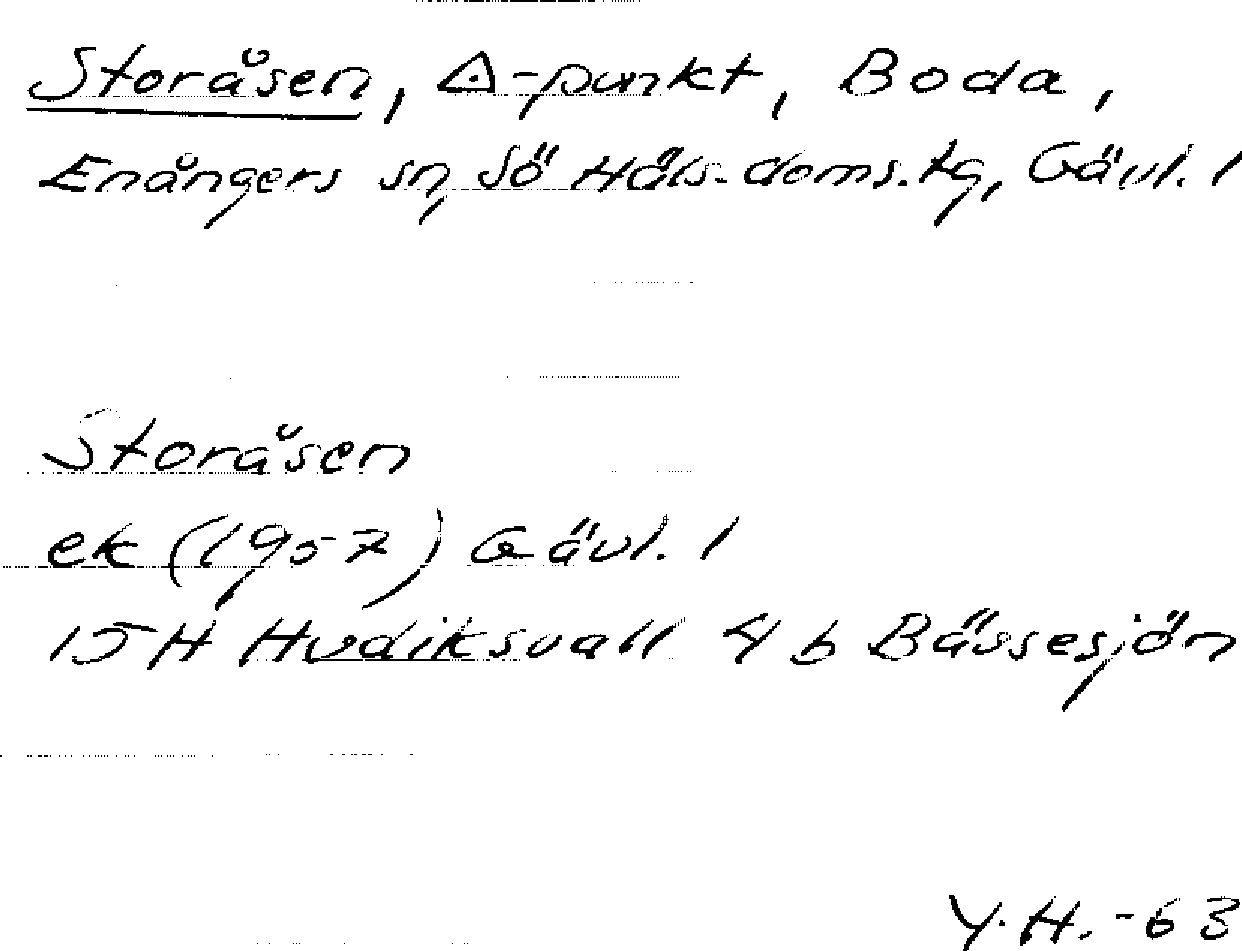 Storåsen, △-punkt, Boda,
Enångers sn, Sö Häls. doms.tg, Gävl. l
Storåsen
ek (1957) Gävl. l
15H Hudiksvall 4 b Bässesjön
Y.H. -63